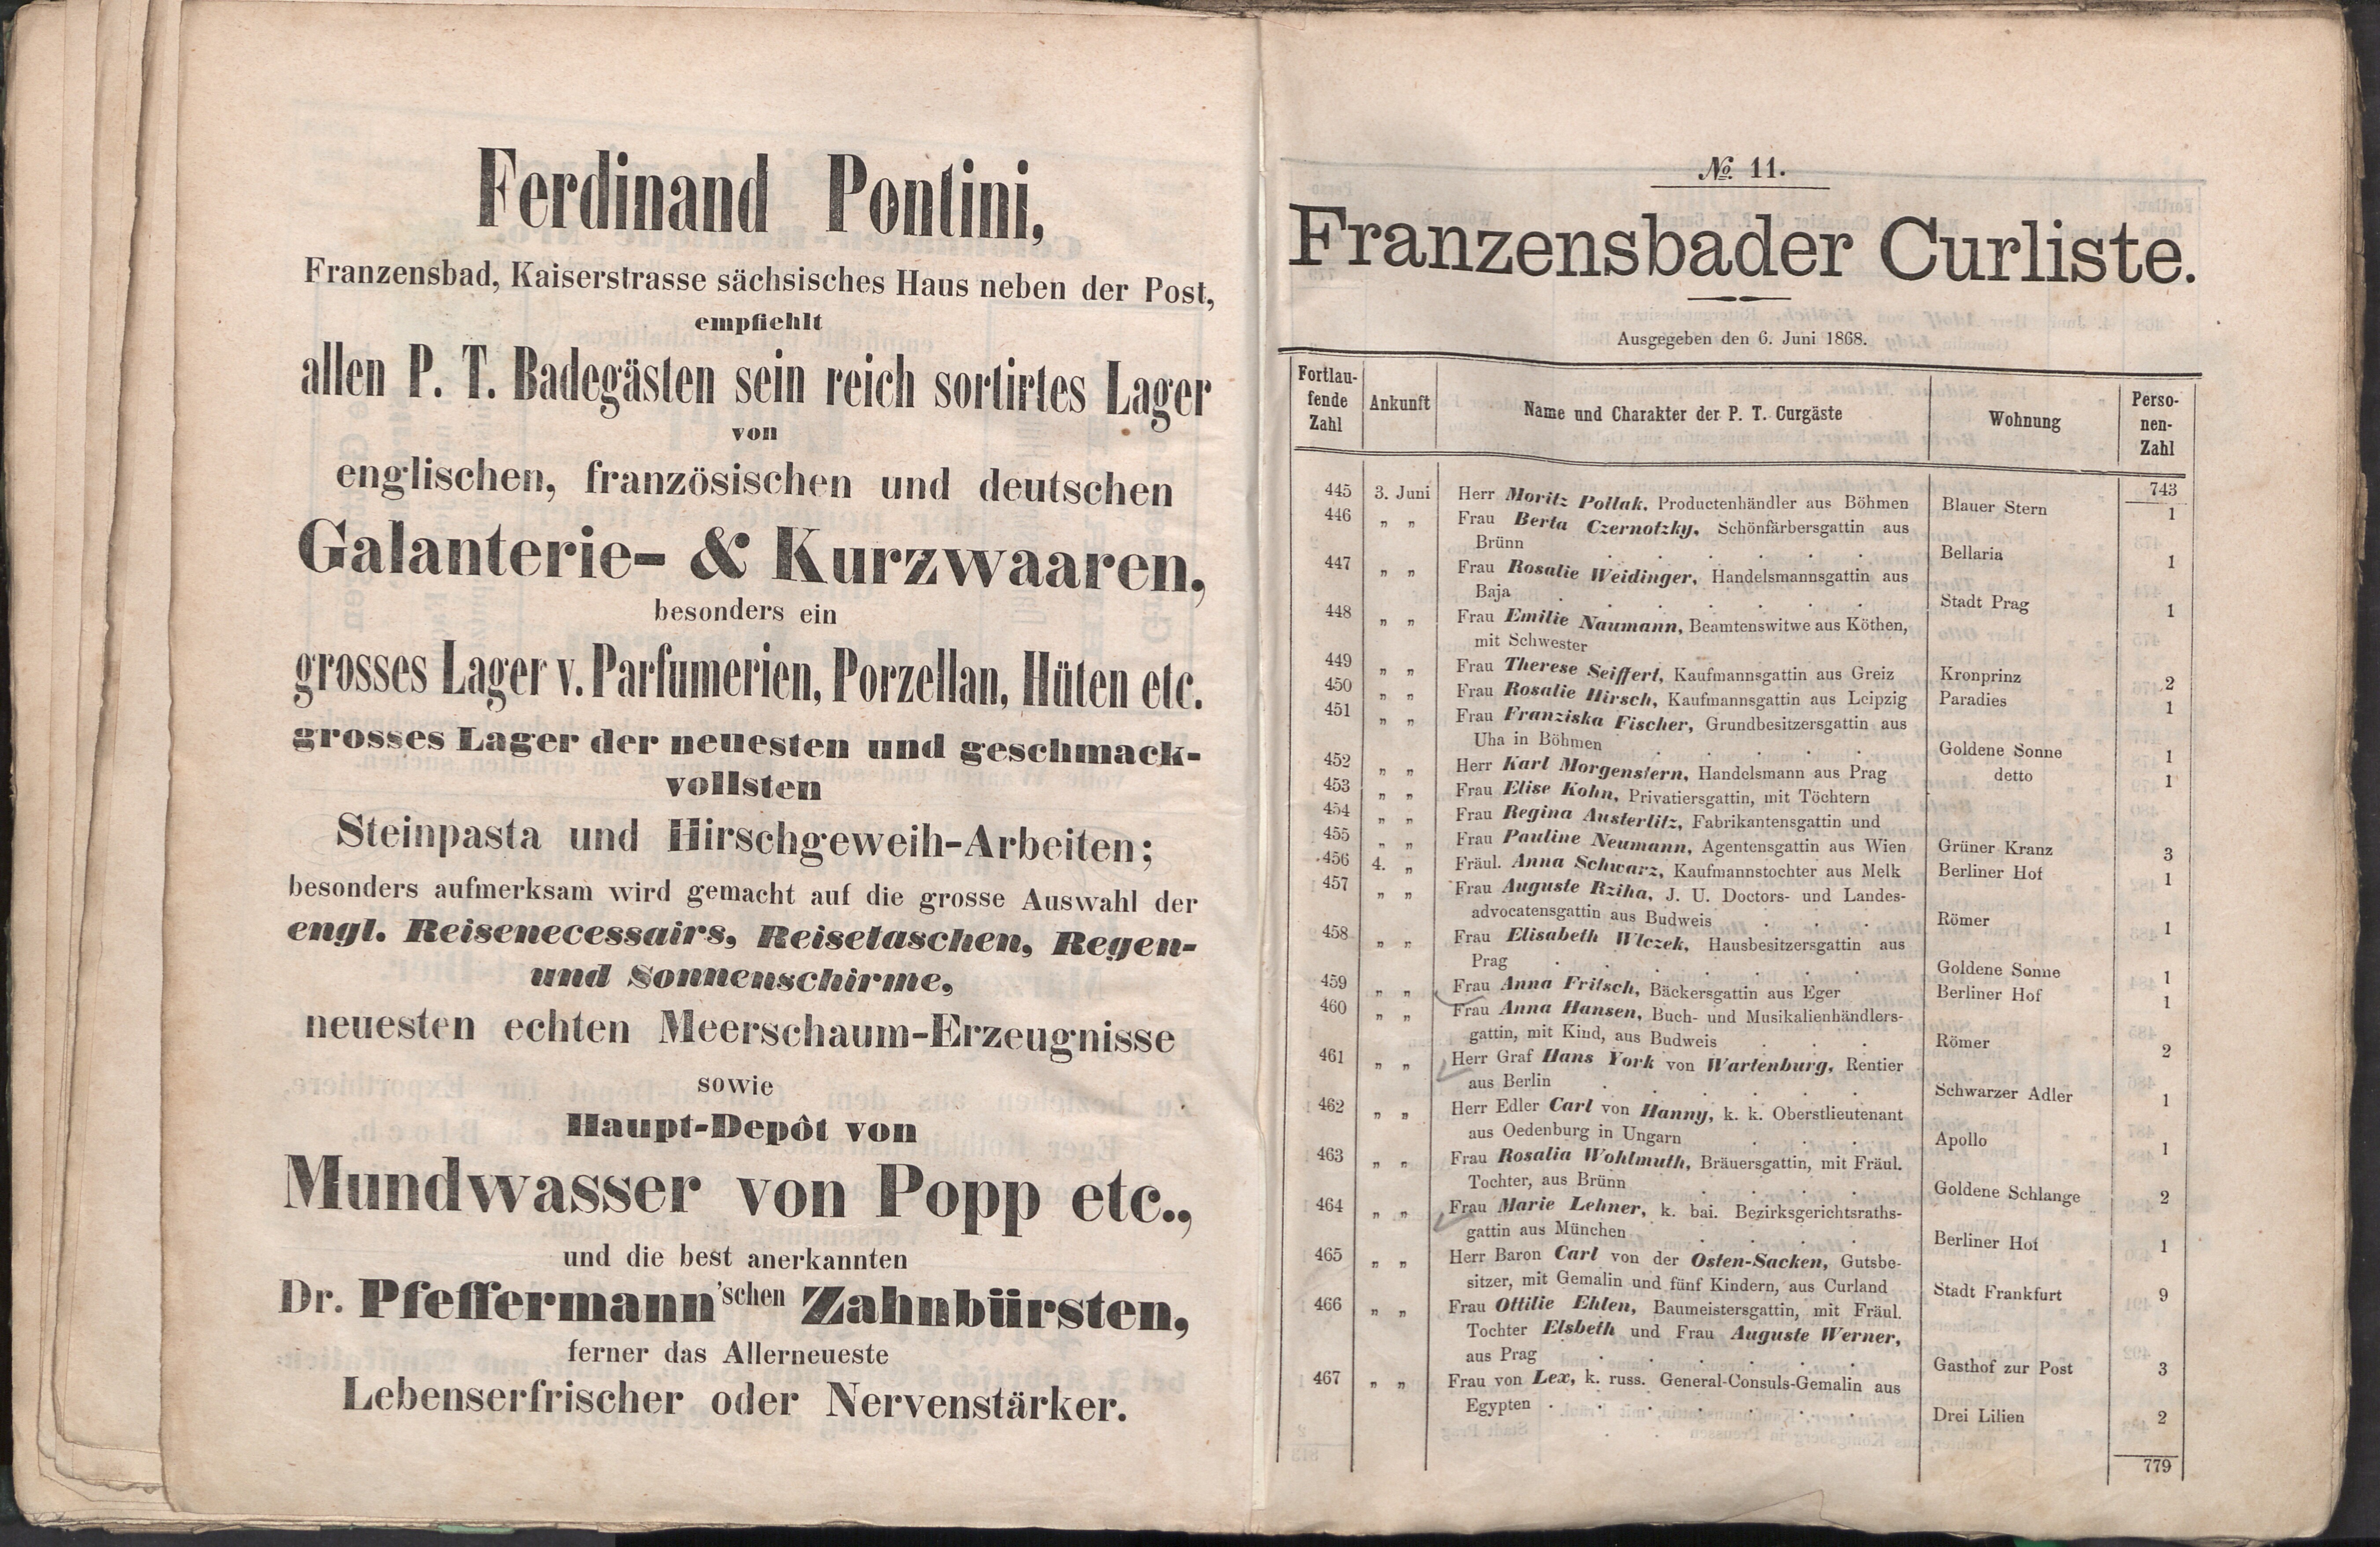 Ferdinand Pontini,
Franzensbad, Kaiserstrasse sächsisches Haus neben der Post,
empfiehlt
allen P. T. Badegästen sein reich sortirtes Lager
von
englischen, französischen und deutschen
Galanterie- & Kurzwaaren,
besonders ein
grosses Lager v. Parfumerien, Porzellan, Hüten etc.
grosses Lager der neuesten und geschmack-
vollsten
Steinpasta und Hirschgeweih-Arbeiten;
besonders aufmerksam wird gemacht auf die grosse Auswahl der
engl. Reisenecessairs, Reisetaschen, Regen-
und Sonnenschirme,
neuesten echten Meerschaum-Erzeugnisse
sowie
Haupt-Depôt von
Mundwasser von Popp etc.,
und die best anerkannten
Dr. Pfeffermann'schen Zahnbürsten,
ferner das Allerneueste
Lebenserfrischer oder Nervenstärker.
№ 11.
Franzensbader Curliste.
Ausgegeben den 6. Juni 1868.
Fortlau-
fende
Zahl
Ankunft
Name und Charakter der P. T. Curgäste
Wohnung
Perso-
nen-
Zahl
743
445 3. Juni Herr Moritz Pollak, Productenhändler aus Böhmen Blauer Stern 1
446 „ „ Frau Berta Czernotzky, Schönfärbersgattin aus
Brünn . . . . . . Bellaria 1
447 „ „ Frau Rosalie Weidinger, Handelsmannsgattin aus
Baja . . . . . . . Stadt Prag 1
448 „ „ Frau Emilie Naumann, Beamtenswitwe aus Köthen,
mit Schwester Kronprinz 2
449 „ „ Frau Therese Seiffert, Kaufmannsgattin aus Greiz Paradies 1
450 „ „ Frau Rosalie Hirsch, Kaufmannsgattin aus Leipzig
451 „ „ Frau Franziska Fischer, Grundbesitzersgattin aus
Uha in Böhmen . . . . . Goldene Sonne 1
452 „ „ Herr Karl Morgenstern, Handelsmann aus Prag detto 1
453 „ „ Frau Elise Kohn, Privatiersgattin, mit Töchtern
454 „ „ Frau Regina Austerlitz, Fabrikantensgattin und
455 „ „ Frau Pauline Neumann, Agentensgattin aus Wien Grüner Kranz 3
456 4. „ Fräul. Anna Schwarz, Kaufmannstochter aus Melk Berliner Hof 1
457 „ „ Frau Auguste Rziha, J. U. Doctors- und Landes-
advocatensgattin aus Budweis . . . Römer 1
458 „ „ Frau Elisabeth Wlczek, Hausbesitzersgattin aus
Prag . . . . . . . Goldene Sonne 1
459 „ „ Frau Anna Fritsch, Bäckersgattin aus Eger Berliner Hof 1
460 „ „ Frau Anna Hansen, Buch- und Musikalienhändlers-
gattin, mit Kind, aus Budweis . . . Römer 2
461 „ „ Herr Graf Hans York von Wartenburg, Rentier
aus Berlin . . . . . . Schwarzer Adler 1
462 „ „ Herr Edler Carl von Hanny, k. k. Oberstlieutenant
aus Oedenburg in Ungarn . . . Apollo 1
463 „ „ Frau Rosalia Wohlmuth, Bräuersgattin, mit Fräul.
Tochter, aus Brünn . . . . Goldene Schlange 2
464 „ „ Frau Marie Lehner, k. bai. Bezirksgerichtsraths-
gattin aus München . . . . . Berliner Hof 1
465 „ „ Herr Baron Carl von der Osten-Sacken, Gutsbe-
sitzer, mit Gemalin und fünf Kindern, aus Curland Stadt Frankfurt 9
466 „ „ Frau Ottilie Ehlen, Baumeistersgattin, mit Fräul.
Tochter Elsbeth und Frau Auguste Werner,
aus Prag . . . . . . Gasthof zur Post 3
467 „ „ Frau von Lex, k. russ. General-Consuls-Gemalin aus
Egypten . . . . . . . Drei Lilien 2
779